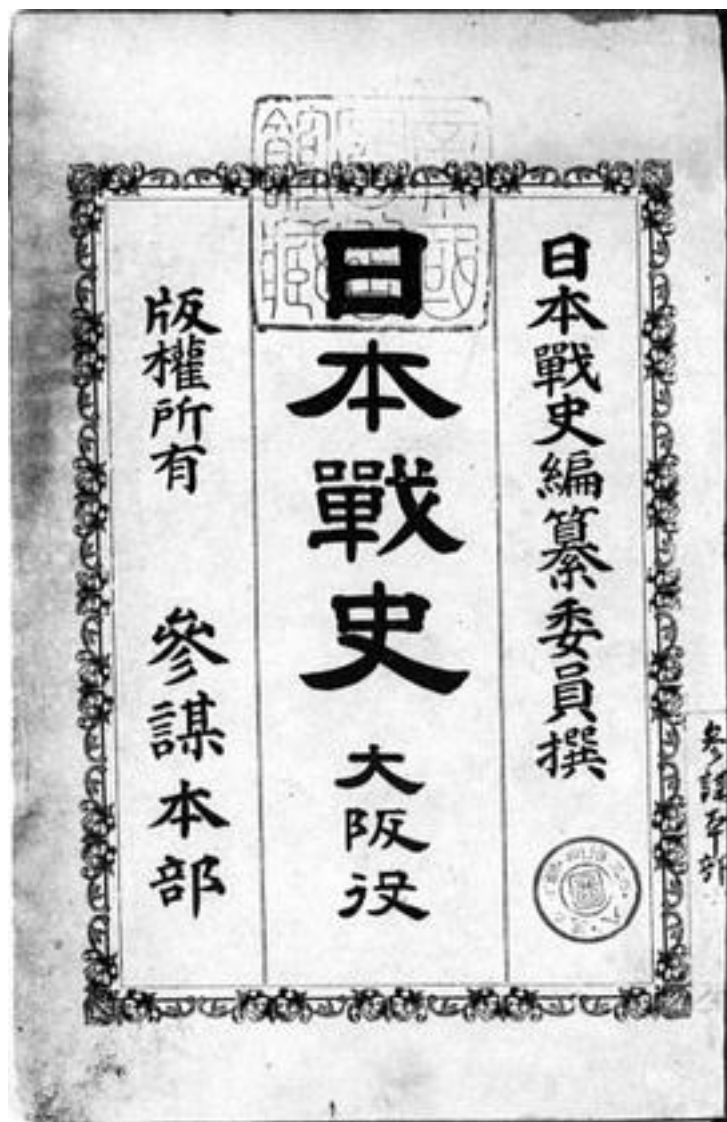 日本戰史編纂委員撰
日本戰史 大阪役
版權所有 參謀本部
參謀本部